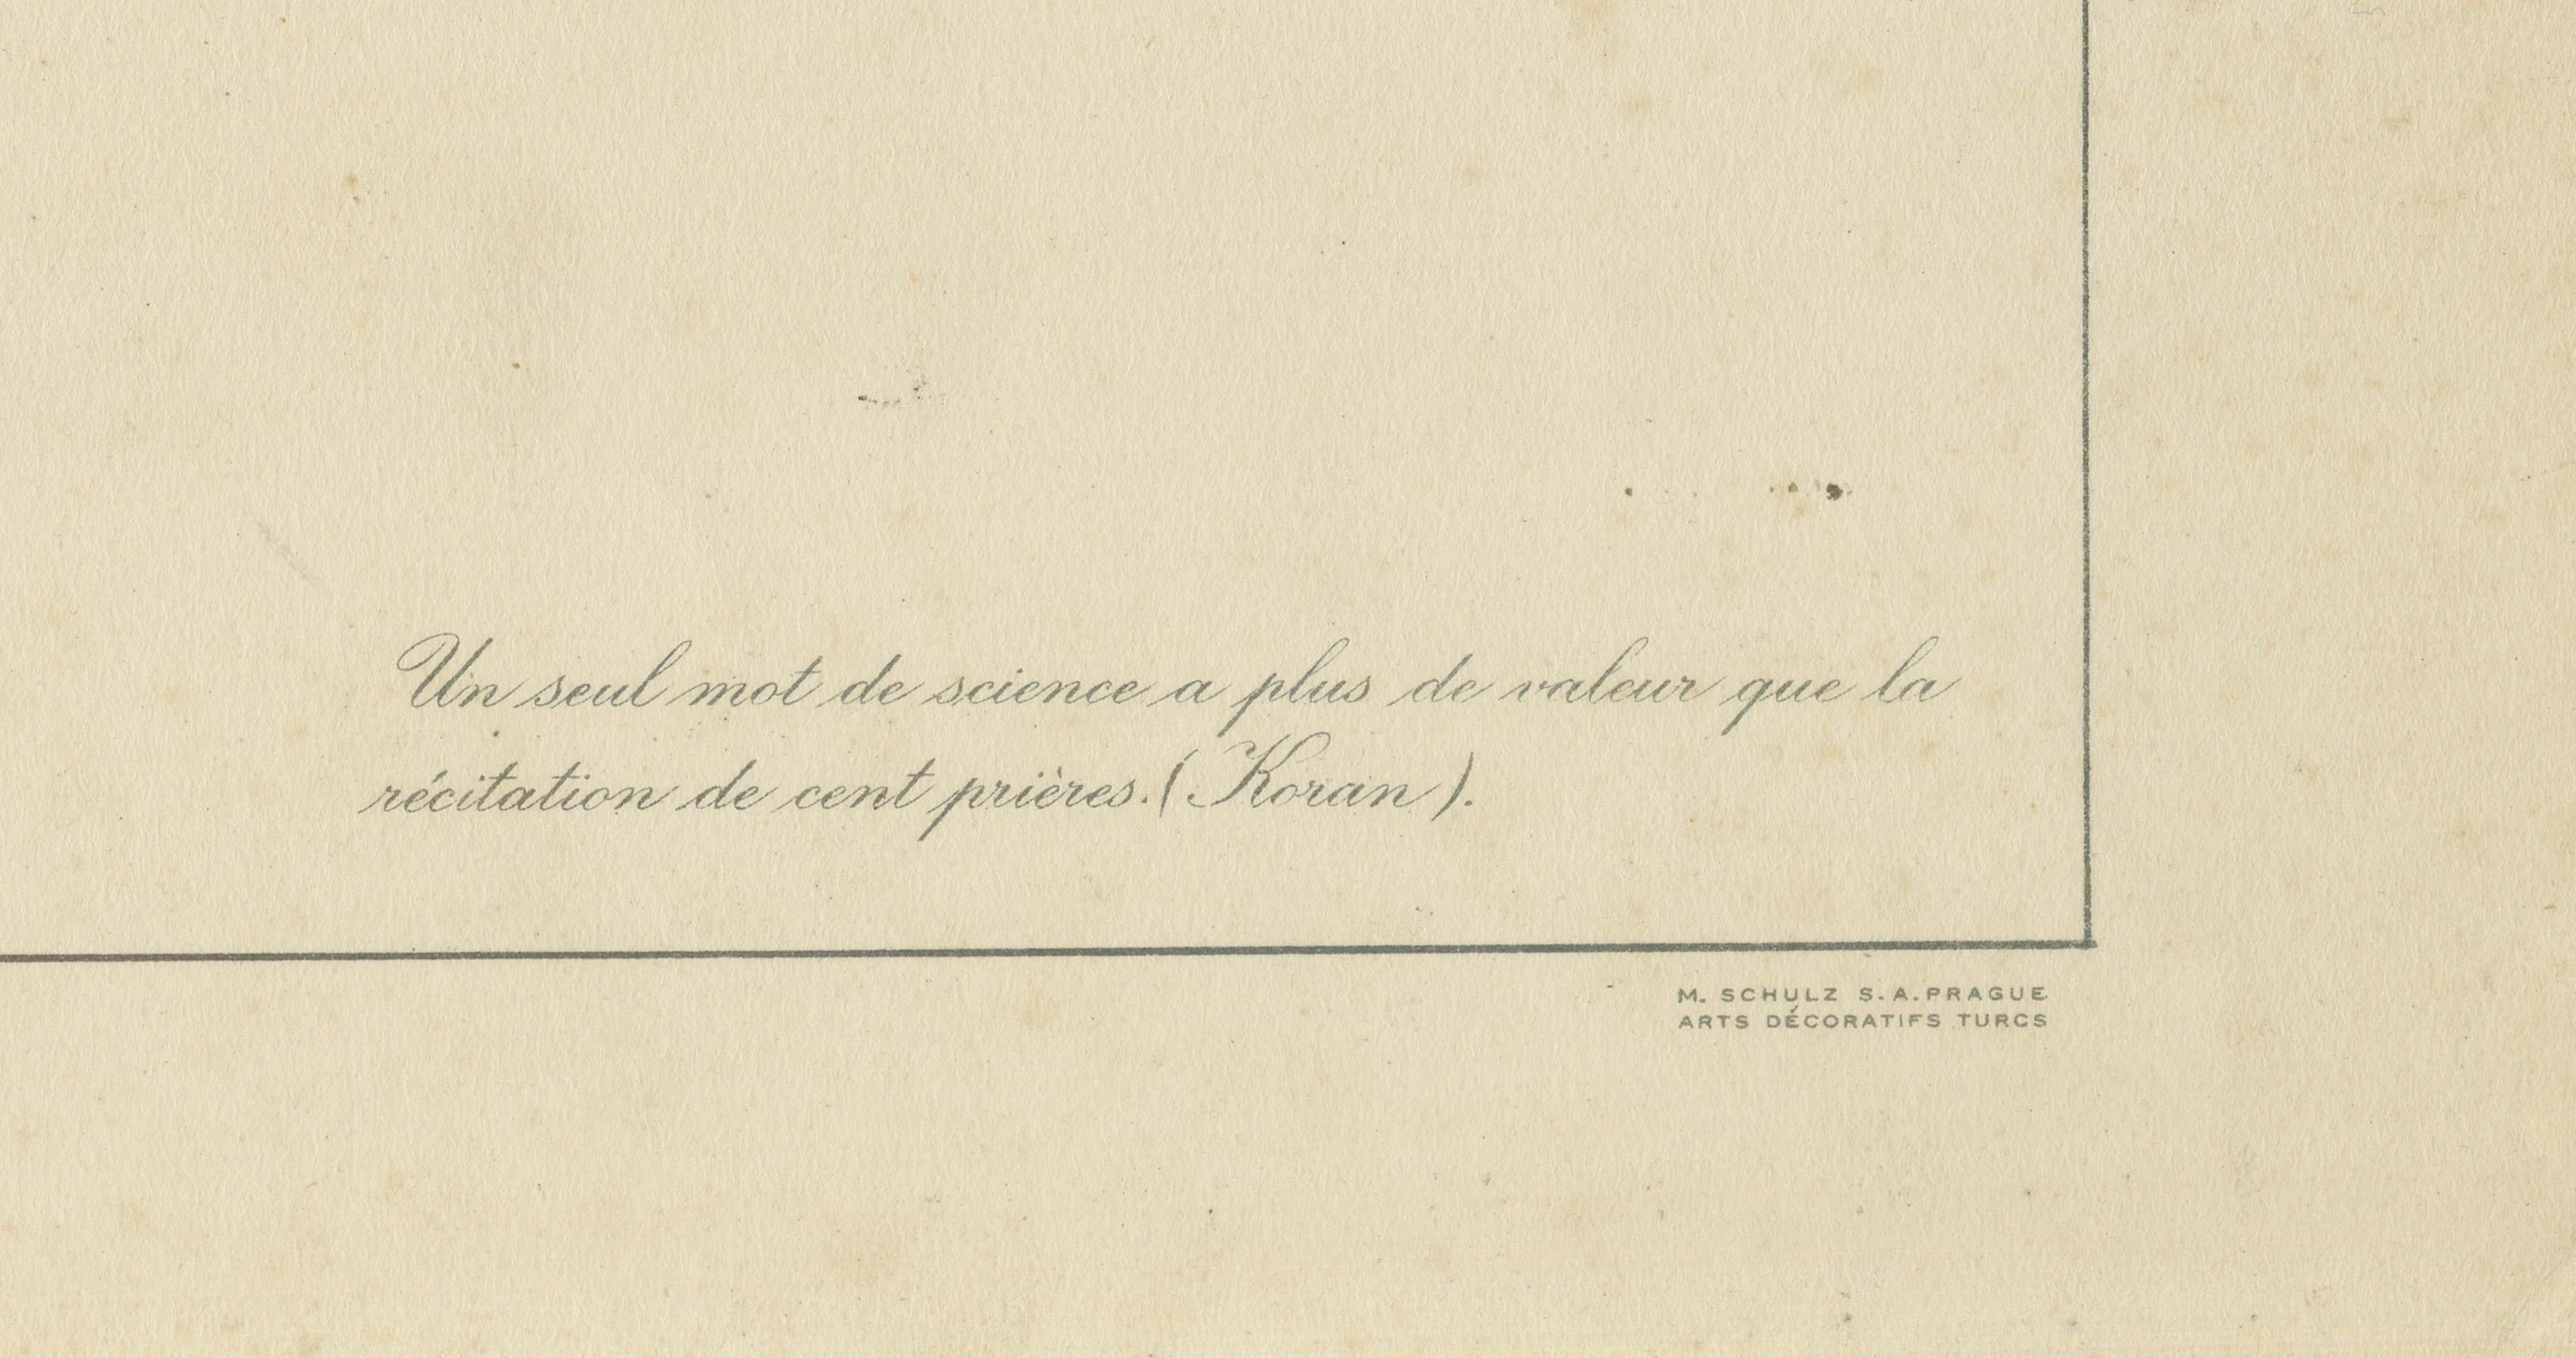 Un seul mot de science a plus de valeur que la
récitation de cent prières. (Koran).
M. SCHULZ S.A. PRAGUE
ARTS DÉCORATIFS TURCS